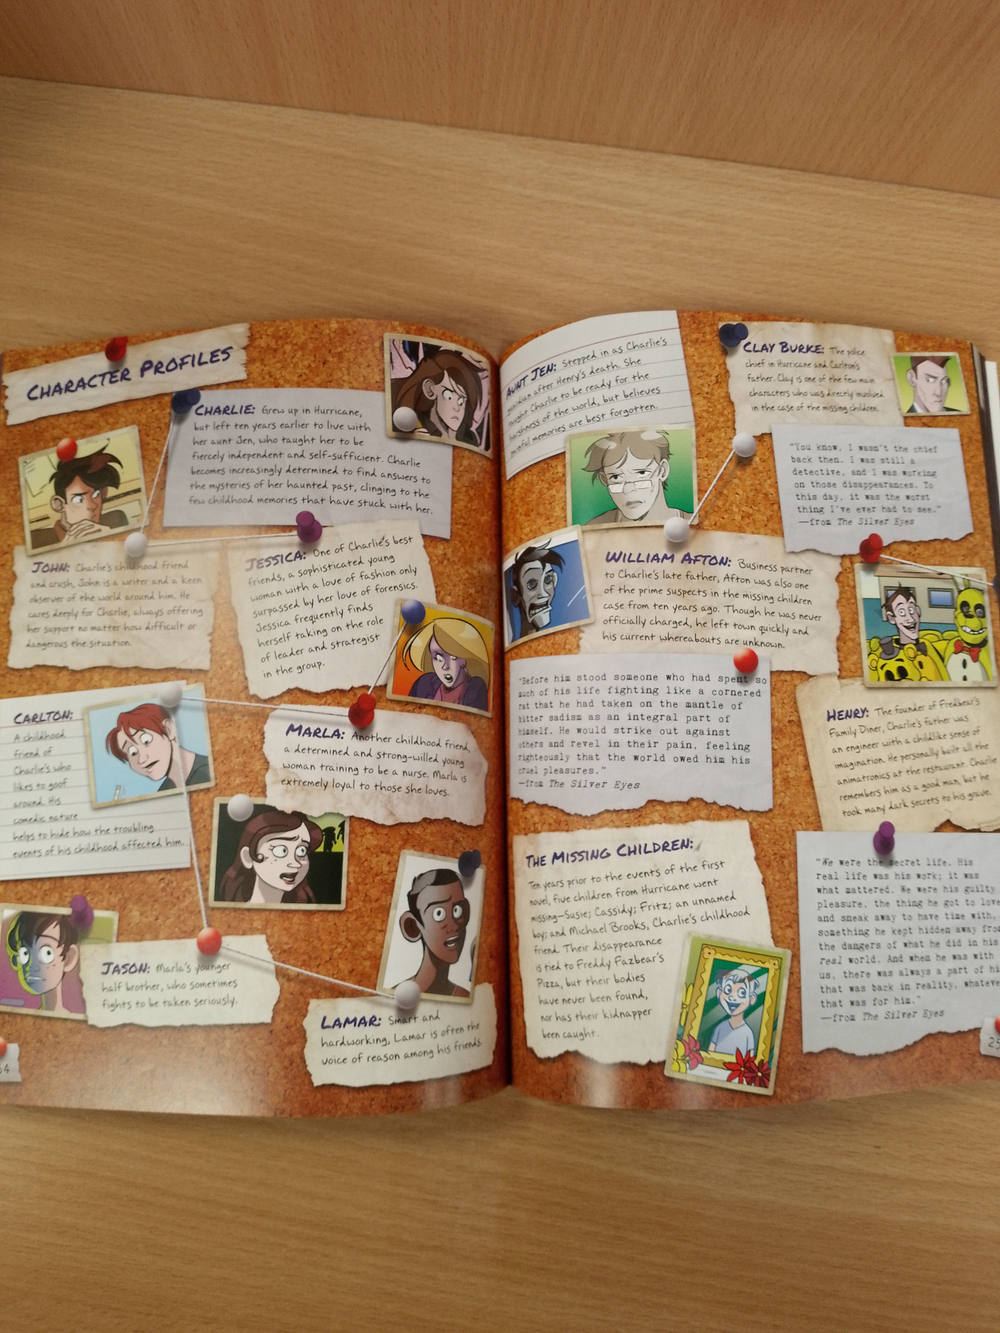 CHARACTER PROFILES
CHARLIE: Grew up in Hurricane,
but left ten years earlier to live with
her aunt Jen, who taught her to be
fiercely independent and self-sufficient. Charlie
becomes increasingly determined to find answers to
the mysteries of her haunted past, clinging to the
few childhood memories that have stuck with her.
JOHN: Charlie's childhood friend
and crush, John is a writer and a keen
observer of the world around him. He
cares deeply for Charlie, always offering
her support no matter how difficult or
dangerous the situation.
JESSICA: One of Charlie's best
friends, a sophisticated young
woman with a love of fashion only
surpassed by her love of forensics.
Jessica frequently finds
herself taking on the role
of leader and strategist
in the group.
CARLTON:
A childhood
friend of
Charlie's who
likes to goof
around. His
comedic nature
helps to hide how the troubling
events of his childhood affected him.
MARLA: Another childhood friend,
a determined and strong-willed young
woman training to be a nurse. Marla is
extremely loyal to those she loves.
JASON: Marla's younger
half brother, who sometimes
fights to be taken seriously.
LAMAR: Smart and
hardworking, Lamar is often the
voice of reason among his friends.
AUNT JEN: Stepped in as Charlie's
guardian after Henry's death. She
taught Charlie to be ready for the
harshness of the world, but believes
painful memories are best forgotten.
CLAY BURKE: The police
chief in Hurricane and Carlton's
father. Clay is one of the few main
characters who was directly involved
in the case of the missing children.
"You know, I wasn't the chief
back then. I was still a
detective, and I was working
on those disappearances. To
this day, it was the worst
thing I've ever had to see."
—from The Silver Eyes
WILLIAM AFTON: Business partner
to Charlie's late father, Afton was also one
of the prime suspects in the missing children
case from ten years ago. Though he was never
officially charged, he left town quickly and
his current whereabouts are unknown.
"Before him stood someone who had spent so
much of his life fighting like a cornered
rat that he had taken on the mantle of
bitter sadism as an integral part of
himself. He would strike out against
others and revel in their pain, feeling
righteously that the world owed him his
cruel pleasures."
—from The Silver Eyes
HENRY: The founder of Fredbear's
Family Diner, Charlie's father was
an engineer with a childlike sense of
imagination. He personally built all the
animatronics at the restaurant. Charlie
remembers him as a good man, but he
took many dark secrets to his grave.
THE MISSING CHILDREN:
Ten years prior to the events of the first
novel, five children from Hurricane went
missing—Susie; Cassidy; Fritz; an unnamed
boy; and Michael Brooks, Charlie's childhood
friend. Their disappearance
is tied to Freddy Fazbear's
Pizza, but their bodies
have never been found,
nor has their kidnapper
been caught.
"We were the secret life. His
real life was his work; it was
what mattered. We were his guilty
pleasure, the thing he got to love
and sneak away to have time with,
something he kept hidden away from
the dangers of what he did in his
real world. And when he was with
us, there was always a part of hi
that was back in reality, whateve
that was for him."
—from The Silver Eyes